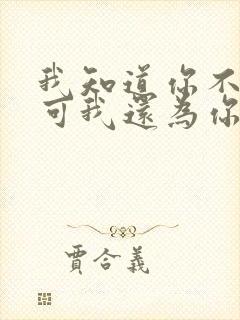 我知道你不
可我還為你
賈合義